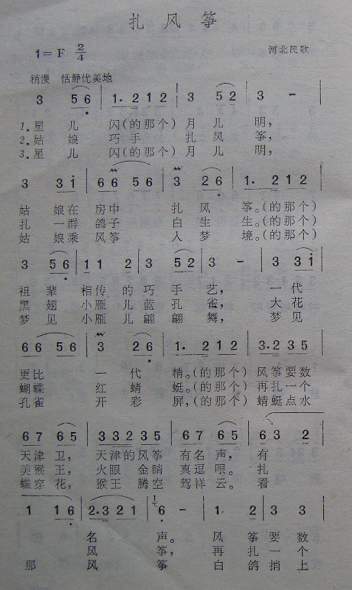 扎风筝
1=F 2/4
河北民歌
稍慢 恬静优美地
3 56 | 1. 212 | 3 52 | 3 - |
1.星儿 闪(的那个)月儿明,
2.姑娘 巧手 扎风筝,
3.星儿 闪(的那个)月儿明,
3 31 | 66 56 | 3 26 | 1. 212 |
姑娘在房中 扎风筝。(的那个)
扎一群鸽子 白生生。(的那个)
姑娘乘风筝 入梦境。(的那个)
3 56 | 11 2 | 3 52 | 3 - | 3 31 |
祖辈相传的巧手艺, 一代
黑翅小雁儿蓝孔雀, 大花
梦见小雁儿翩翩舞, 梦见
66 56 | 3 26 | 1. 212 | 3.235 |
更比一代精。(的那个)风筝要数
蝴蝶红蜻蜓。(的那个)再扎一个
孔雀开彩屏,(的那个)蜻蜓点水
67 65 | 3323 5 | 67 65 | 63 3 |
天津卫, 天津的风筝有名声,有
美猴王, 火眼金睛真逗哏。扎
蝶穿花, 猴王腾空驾祥云。看
1 16 | 2.321 | 6 - | 1 2 1 2 |
名声。风筝要数
风筝, 再扎一个
那风筝白鸽捎上